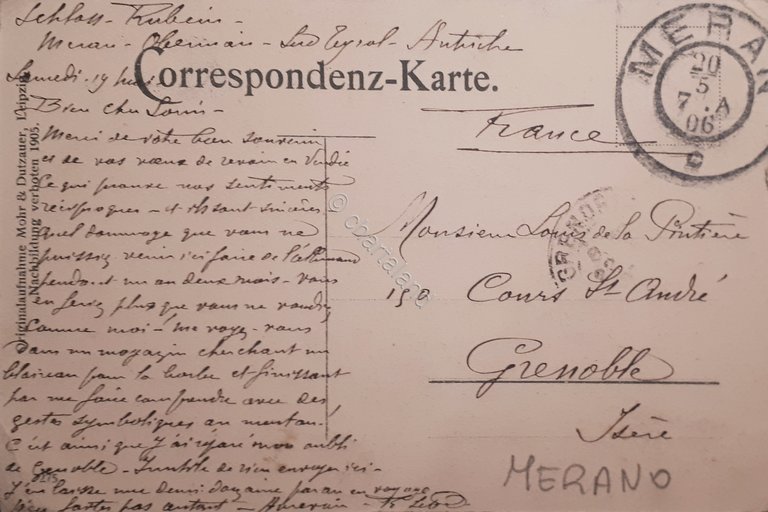 Schloss - Rubein -
Meran - Obermais - Sud Tyrol - Autriche
Samedi - 19 Mai
Correspondenz-Karte.
Bien cher Louis -
Merci de votre bon souvenir
et de vos vœux de revoir en Vendée
Ce qui prouve nos sentiments
réciproques - et ils sont sincères -
quel dommage que vous ne
puissiez venir ici faire de l'allemand
pendant un an deux mois - vous
en feriez plus que vous ne voudriez
Comme moi - me voyez-vous
Dans un magasin cherchant un
blaireau pour la barbe et finissant
par me faire comprendre avec des
gestes symboliques au menton!
C'est ainsi que j'ai réparé mon oubli
de Grenoble - Inutile de rien envoyer ici -
J'en laisse une demi douzaine par an en voyage
n'en faites pas autant - Au revoir -
Originalaufnahme Mohr & Dutzauer, Leipzig
Nachbildung verboten 1905.
MERAN
20
5
7. A
06
France
GRENOBLE
Monsieur Louis de la Pintière
150 Cours St-André
Grenoble
Isère
MERANO
© cdarralane